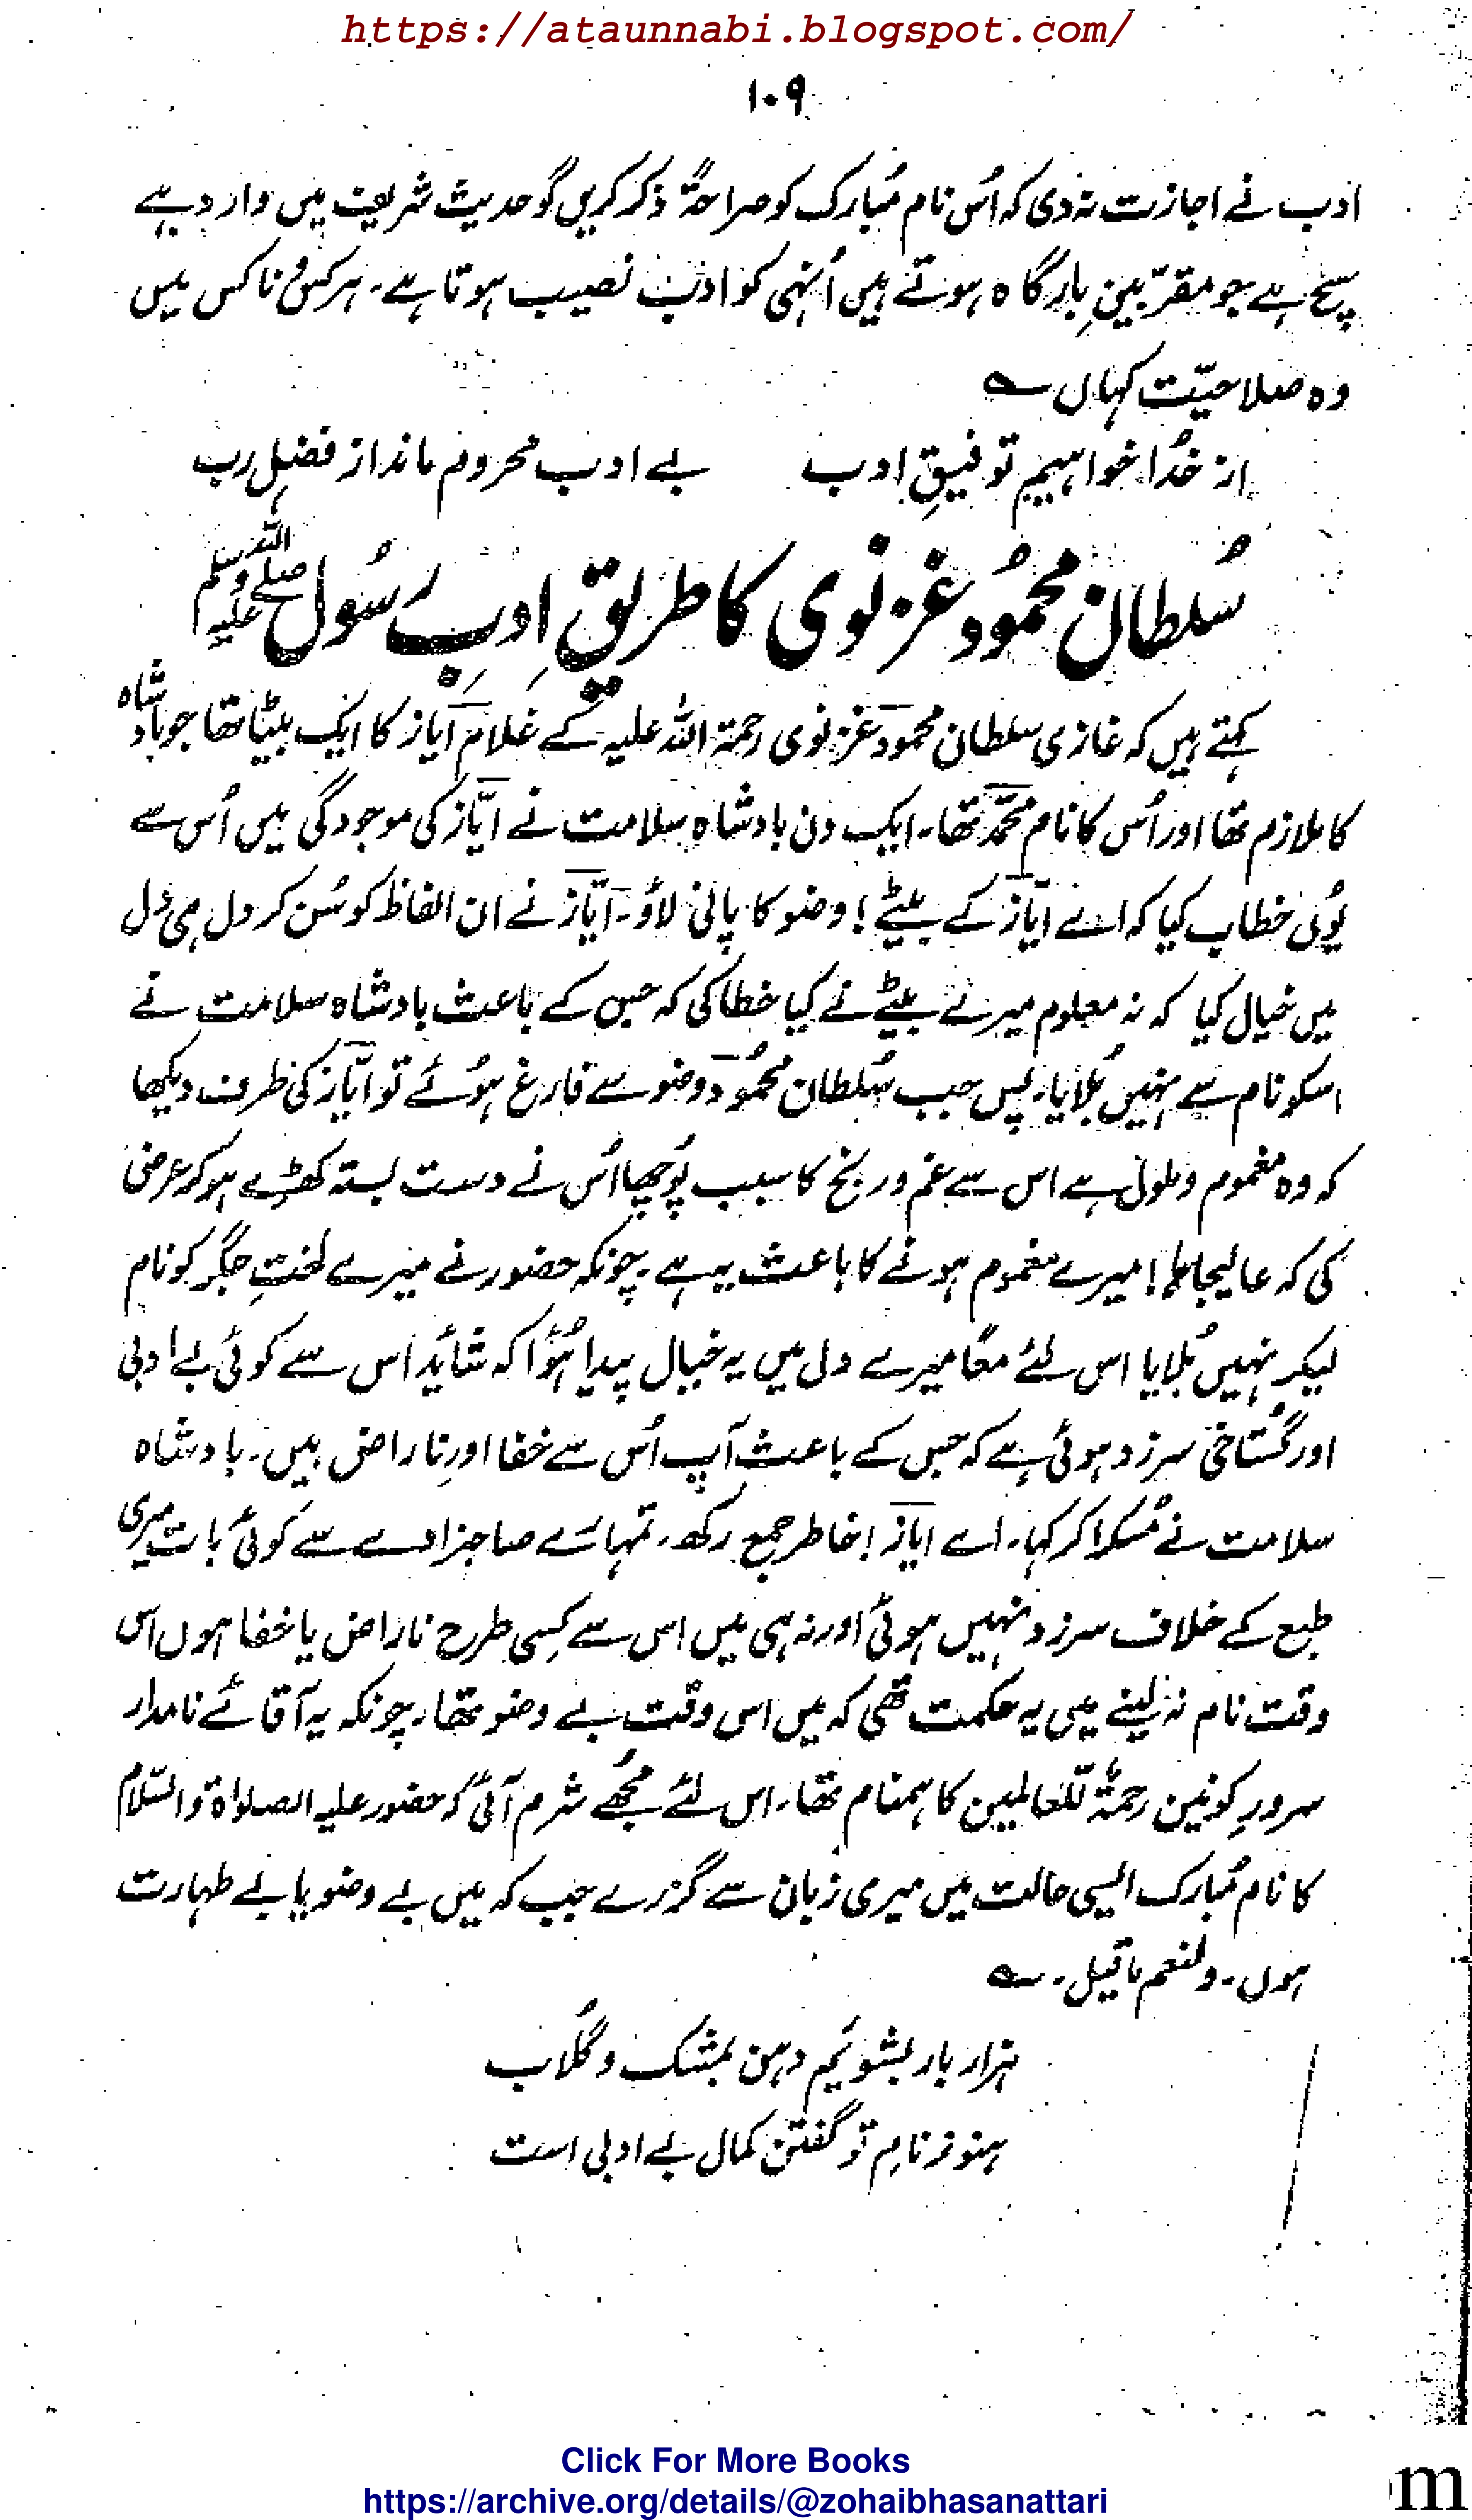 https://ataunnabi.blogspot.com/
۱۰۹
ادب نے اجازت نہ دی کہ اُس نام مُبارک کو صراحۃً ذکر کریں گو حدیث شریف میں وارد ہے
سچ ہے جو مقرّبینِ بارگاہ ہوتے ہیں اُنہی کو ادب نصیب ہوتا ہے۔ ہر کس و ناکس میں
وہ صلاحیّت کہاں ؎
از خُدا خواہیم توفیقِ ادب بے ادب محروم ماند از فضلِ رب
سُلطان محمُود غزنوی کا طریقِ ادبِ رسُول صلے اللہ علیہ وسلم
کہتے ہیں کہ غازی سلطان محمود غزنوی رحمۃ اللہ علیہ کے غلام ایاز کا ایک بیٹا تھا جو بادشاہ
کا ملازم تھا اور اُس کا نام محمّد تھا۔ ایک دن بادشاہ سلامت نے ایّاز کی موجودگی میں اُس سے
یُوں خطاب کیا کہ اے ایّاز کے بیٹے! وضو کا پانی لاؤ۔ ایّاز نے ان الفاظ کو سُن کر دل ہی دل
میں خیال کیا کہ نہ معلوم میرے بیٹے نے کیا خطا کی کہ جس کے باعث بادشاہ سلامت نے
اسکو نام سے نہیں بُلایا۔ پس جب سُلطان محمُود وضو سے فارغ ہوُئے تو ایّاز کی طرف دیکھا
کہ وہ مغموم و ملول ہے اس سے غم و رنج کا سبب پُوچھا اُس نے دست بستہ کھڑے ہو کر عرض
کی کہ عالیجاہا! میرے مغموم ہونے کا باعث یہ ہے۔ چونکہ حضور نے میرے لختِ جگر کو نام
لیکر نہیں بُلایا اس لئے معًا میرے دل میں یہ خیال پیدا ہُوا کہ شائد اس سے کوئی بے ادبی
اور گُستاخی سرزد ہوئی ہے کہ جس کے باعث آپ اُس سے خفا اور ناراض ہیں۔ بادشاہ
سلامت نے مُسکرا کر کہا۔ اے ایاز! خاطر جمع رکھ۔ تمہارے صاحبزادے سے کوئی بات میری
طبع کے خلاف سرزد نہیں ہوئی اور نہ ہی میں اس سے کِسی طرح ناراض یا خفا ہوں اس
وقت نام نہ لینے میں یہ حکمت تھی کہ میں اس وقت بے وضو تھا۔ چونکہ یہ آقائے نامدار
سرورِ کونین رحمۃٌ للعالمین کا ہمنام تھا۔ اس لئے مجُھے شرم آئی کہ حضور علیہ الصلواۃ والسّلام
کا نام مُبارک ایسی حالت میں میری زبان سے گزرے جب کہ میں بے وضو یا بے طہارت
ہوں۔ ولنعم ماقیل۔ ؎
ہزار بار بشویُم دہن بمشک و گلاب
ہنوز نامِ تو گفتن کمال بے ادبی است
Click For More Books
https://archive.org/details/@zohaibhasanattari
om